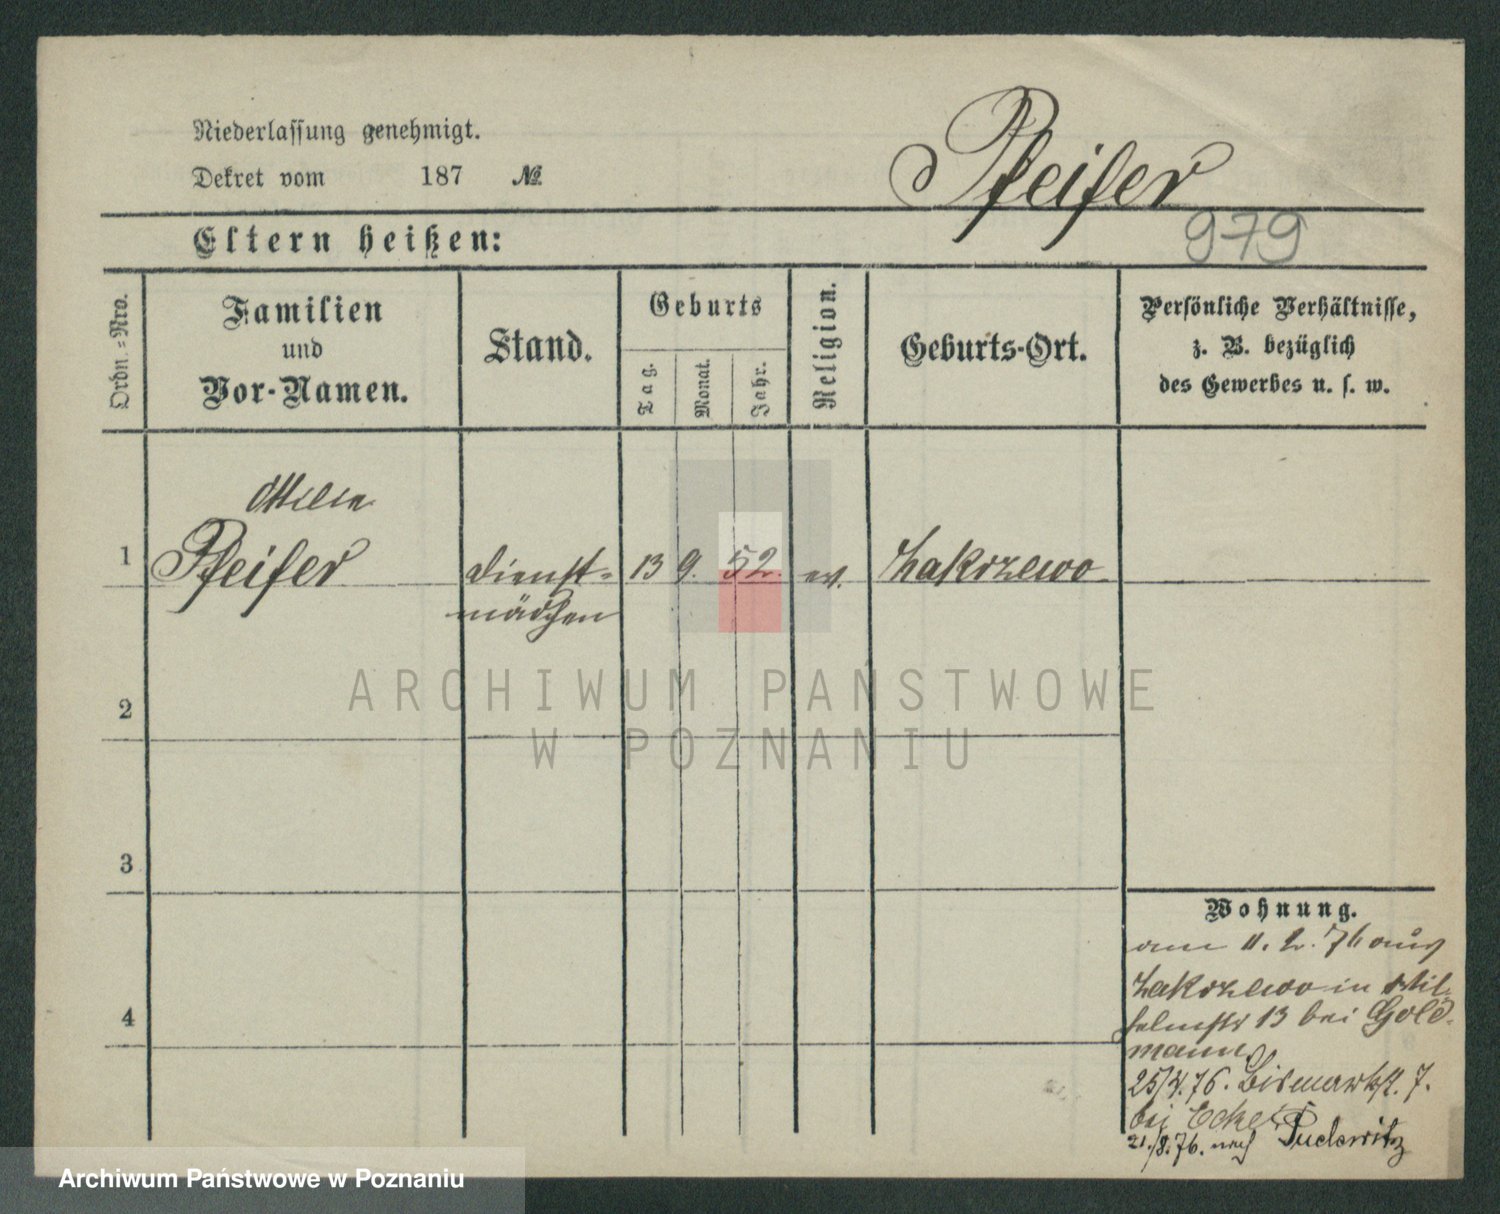 Niederlassung genehmigt.
Dekret vom 187 №
Pfeifer
979
Eltern heißen:
Ordn.=Nro.
Familien
und
Vor-Namen.
Stand.
Geburts
Tag.
Monat.
Jahr.
Religion.
Geburts-Ort.
Persönliche Verhältnisse,
z. B. bezüglich
des Gewerbes u. s. w.
Ottilie
1 Pfeifer Dienst= 13 9. 52. ev. Zakrzewo
mädchen
2
3
4
Wohnung.
am 11. 2. 76 aus
Zakrzewo in Wil
helmstr 13 bei Gold
mann
25/4.76. Bismarkst. 7.
bei Ecker
21./8.76. nach Pudewitz
ARCHIWUM PAŃSTWOWE
W POZNANIU
Archiwum Państwowe w Poznaniu